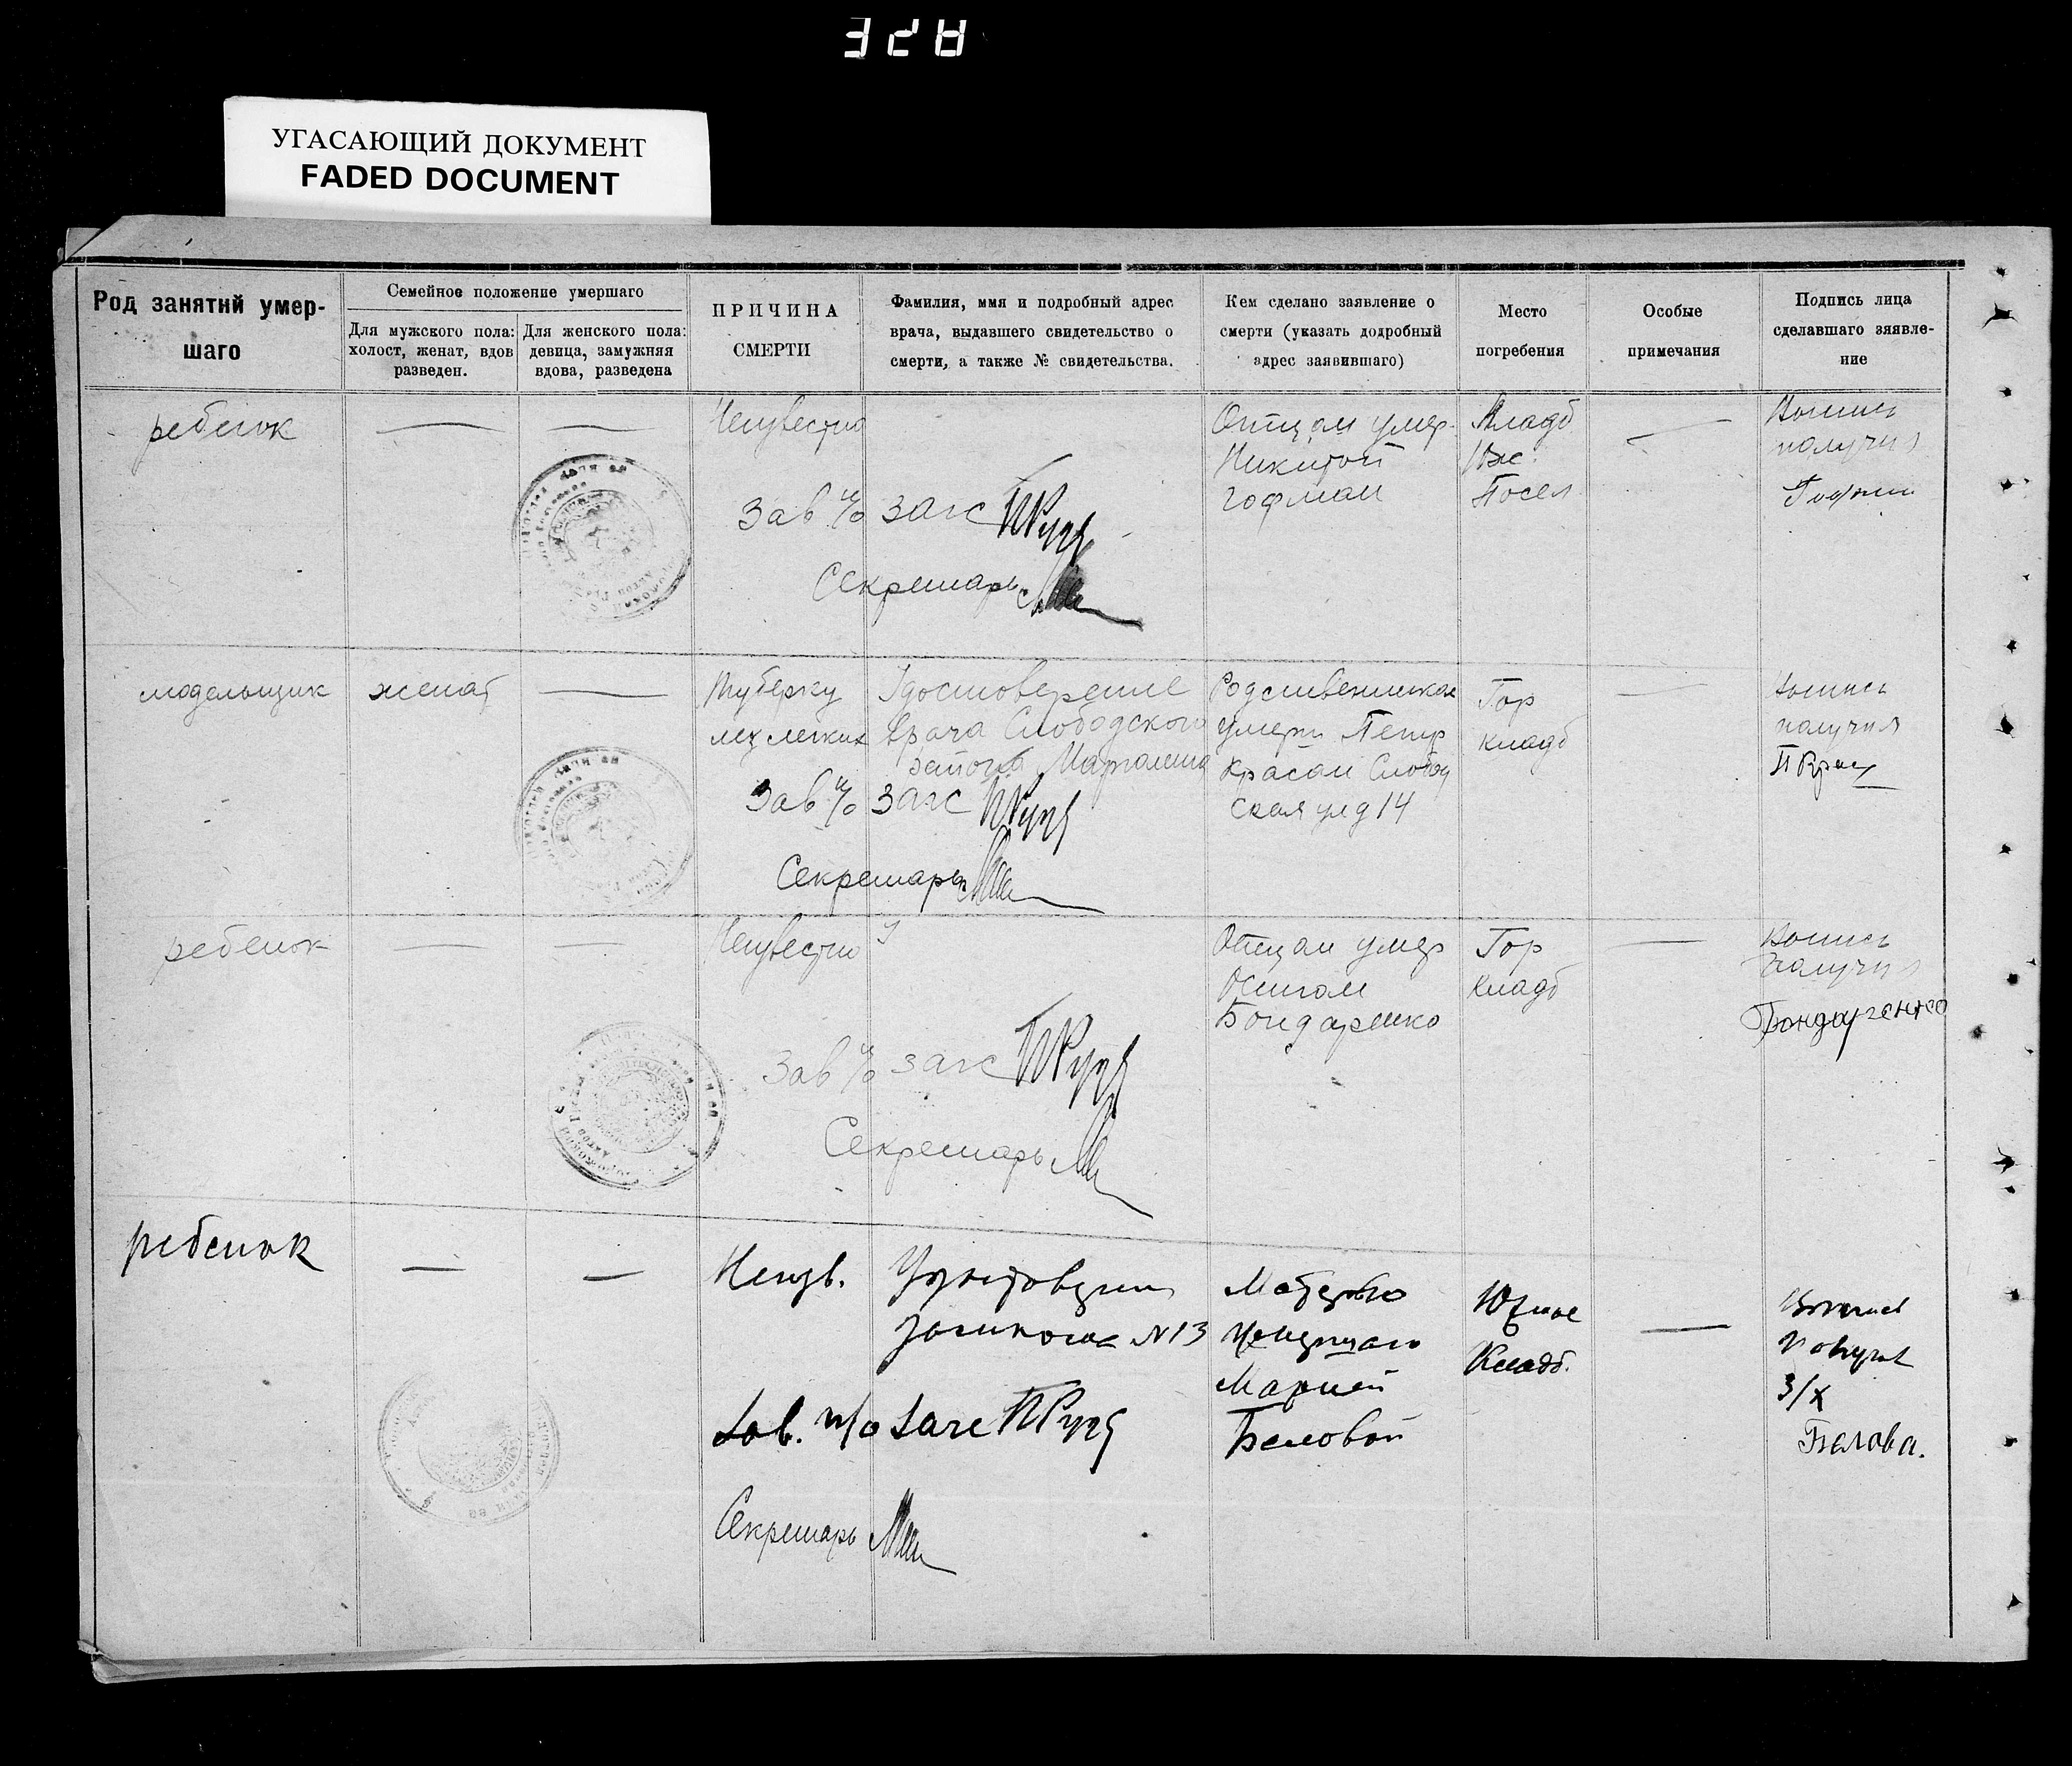 328
УГАСАЮЩИЙ ДОКУМЕНТ
FADED DOCUMENT
Род занятий умер-
шаго
Семейное положение умершаго
Для мужского пола:
холост, женат, вдов
разведен.
Для женского пола:
девица, замужняя
вдова, разведена
ПРИЧИНА
СМЕРТИ
Фамилия, ммя и подробный адрес
врача, выдавшего свидетельство о
смерти, а также № свидетельства.
Кем сделано заявление о
смерти (указать додробный
адрес заявившаго)
Место
погребения
Особые
примечания
Подпись лица
сделавшаго зяявле-
ние
ребенок
—
—
Неизвестно
Отцом умер.
Никитой
Гофман
Кладб
Ник.
Посел
—
Выпись
получил
Гофман
Зав п/о загс
Секретарь
модельщик
женат
—
Туберку
лез легких
Удостоверение
врача Слободского
района
Родственником
умерш Петр
Красам Слобод
ская ул д 14
Гор
кладб
—
Выпись
получил
Зав п/о загс
Секретарь
ребенок
—
—
Неизвестно
Отцом умер
Осипом
Бондаренко
Гор
кладб
—
Выпись
получил
Бондаренко
Зав п/о загс
Секретарь
ребенок
—
—
Неизв.
№13
Матерью
Марией
Беловой
Южное
Кладб.
—
Выпись
3/X
Белова.
Зав. п/о Загс
Секретарь